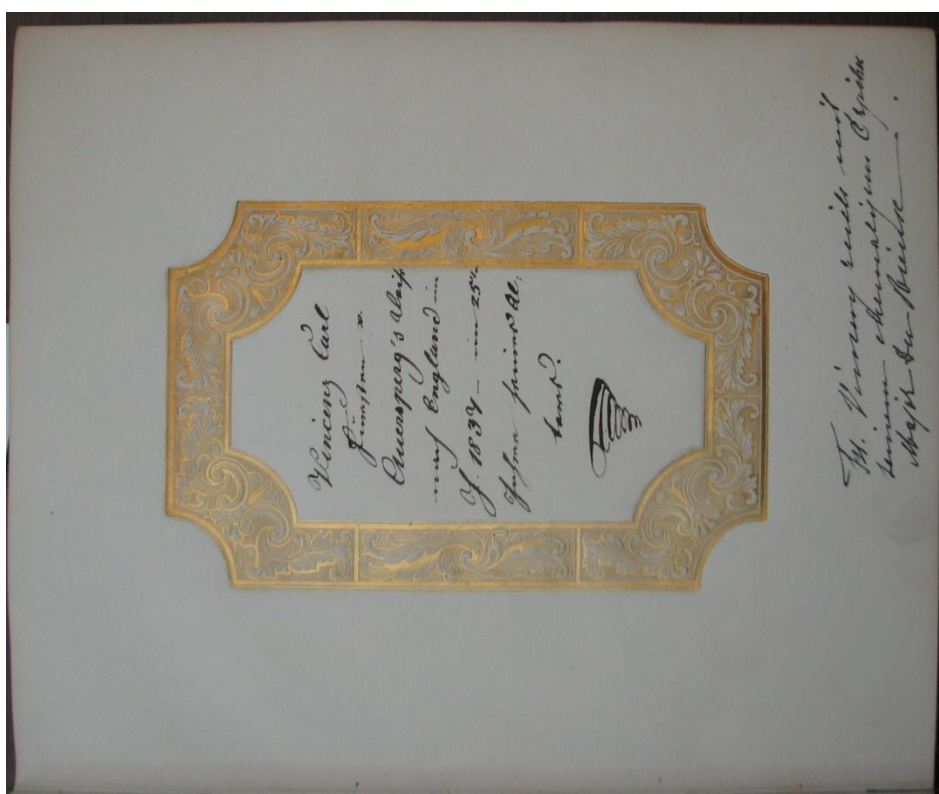 Vincenz Carl
Fürsten v.
Auersperg's Reise
nach England im
J. 1837 – im 25ten
Jahre seines Al-
ters.
Fst. Vinzenz reiste mit
seinem ehemaligen Erzieher
Major